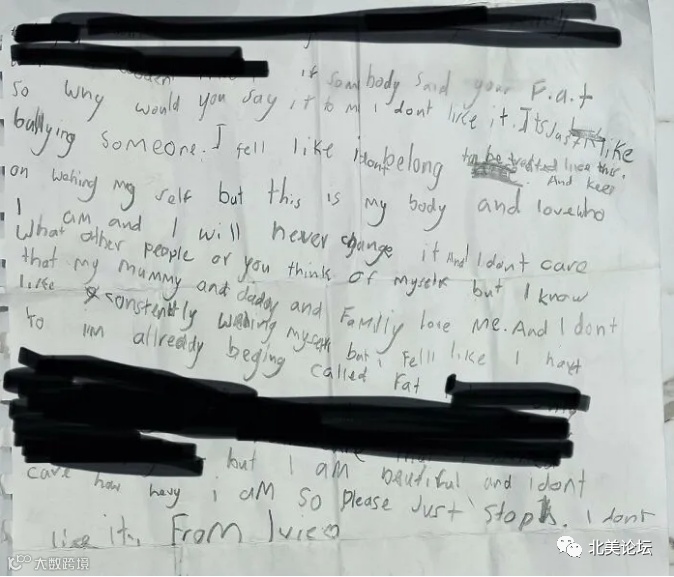 if sombody said your F.a.t
so why would you say it to m I dont like it. Its Just like
bullying someone. I fell like I dont belong to be treated like this.
And keep
on wehing my self but this is my body and love who
I am and I will never change it And I dont care
What other people or you think of myself but I know
that my mummy and daddy and Family love me. And I dont
like constently wehing myself but i fell like I have
to I'm allready beging called Fat
but I am beautiful and i dont
care how hevy i am so please Just stop. I dont
like it. From
大数跨境
北美论坛